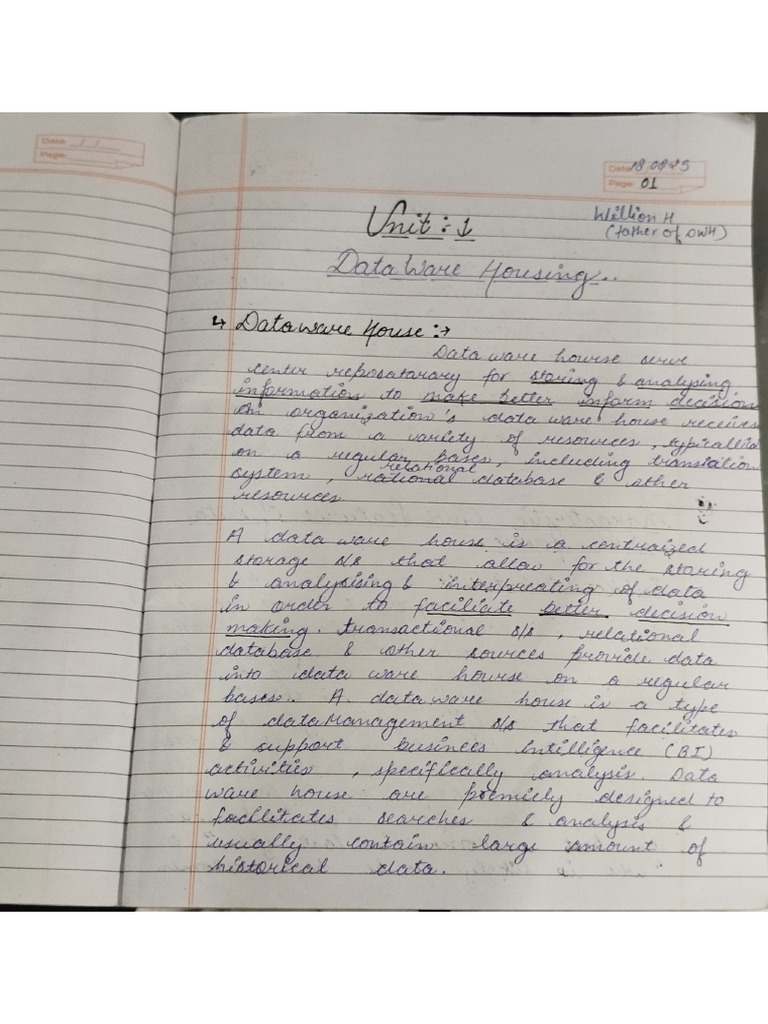 Date
Page
Date 18.08.25
Page 01
Willion H
(father of DWH)
Unit : 1
Data Ware Housing..
↳ Data ware House :→
Data ware hourse serve
center reposatarary for storing & analysing
information to make better inform decision
an organization's data ware house receives
data from a variety of resources, typicallid
on a regular bases, including translation
relational
system, rational database & other
resources
A data ware house is a centraized
storage s/s that allow for the storing
& analysising & interpreating of data
in order to faciliate better decision
making. transactional s/s, relational
database & other sources provide data
into data ware hourse on a regular
bases. A data ware house is a type
of data Management s/s that facilitates
& support business intelligence (BI)
activities, specifically analysis. Data
ware house are premiely designed to
facilitates searches & analysis &
usually contain large amount of
historical data.